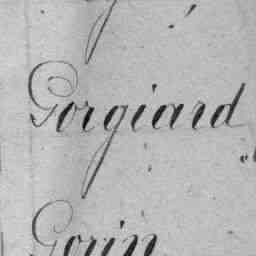 Gorgiard
Gorin